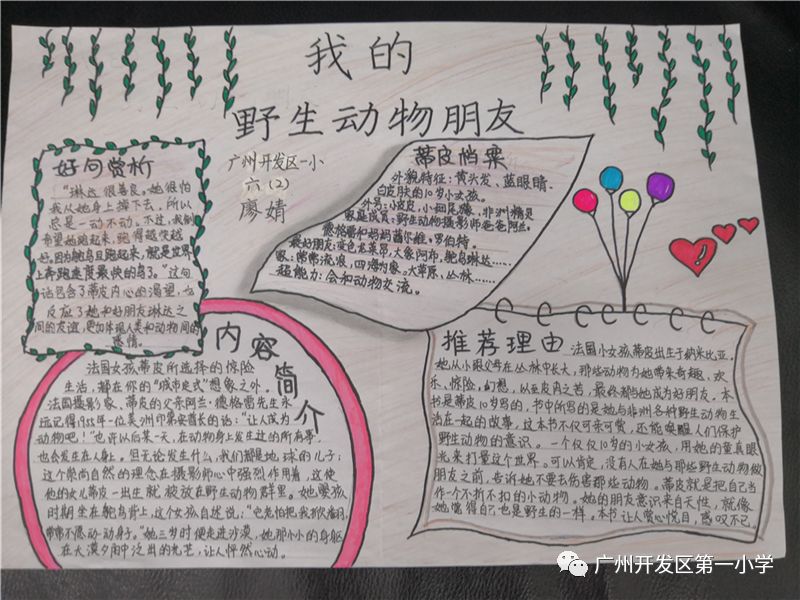 我的
野生动物朋友
广州开发区一小
六（2）
廖婧
好句赏析
"琳达很善良。她很怕
我从她身上摔下去，所以
总是一动不动。不过，我倒
希望她跑起来，跑得越快越
好。因为鸵鸟且跑起来，就是世界
上奔跑速度最快的鸟了。"这句
话包含了蒂皮内心的渴望，也
反应了她和好朋友琳达之
间的友谊，更加体现人类和动物间的
感情。
蒂皮档案
外貌特征：黄头发、蓝眼睛、
白皮肤的10岁小女孩。
外号：小皮皮，小细尾獴，非洲精灵
家庭成员：野生动物摄影师爸爸阿兰·
德格雷和妈妈茜尔维·罗伯特。
最好朋友：变色龙莱昂，大象阿布，鸵鸟琳达……
家：常常流浪，四海为家。大草原、丛林……
超能力：会和动物交流。
内容简介
法国女孩蒂皮所选择的惊险
生活，都在你的"城市定式"想象之外。
法国摄影家、蒂皮的父亲阿兰·德格雷先生永
远记得1955年一位美洲印第安酋长的话："让人成为
动物吧！"也许以后某一天，在动物身上发生过的所有事，
也会发生在人身上。但无论发生什么，我们都是地球的儿子；
这个崇尚自然的理念在摄影师心中强烈作用着，这使
他的女儿蒂皮一出生就被放在野生动物群里。她婴孩
时期坐在鸵鸟背上，这个女孩自述说："它老怕把我掀翻，
常常不愿动动身子。"她三岁时便走进沙漠，她那小小的身躯
在大漠夕阳中泛出的光芒，让人怦然心动。
推荐理由
法国小女孩蒂皮出生于纳米比亚。
她从小跟父母在丛林中长大，那些动物为她带来奇趣、欢
乐、惊险，幻想，以至皮肉之苦，最终都与她成为好朋友。本
书是蒂皮10岁写的，书中所写的是她与非洲各种野生动物生
活在一起的故事，这本书不仅可亲可赏，还能唤醒人们保护
野生动物的意识。一个仅仅10岁的小女孩，用她的童真眼
光来打量这个世界。可以肯定，没有人在她与那些野生动物做
朋友之前，告诉她不要去伤害那些动物。蒂皮就是把自己当
作一个不折不扣的小动物。她的朋友意识来自天性，就像
她觉得自己也是野生的一样。本书让人赏心悦目，感叹不已。
广州开发区第一小学